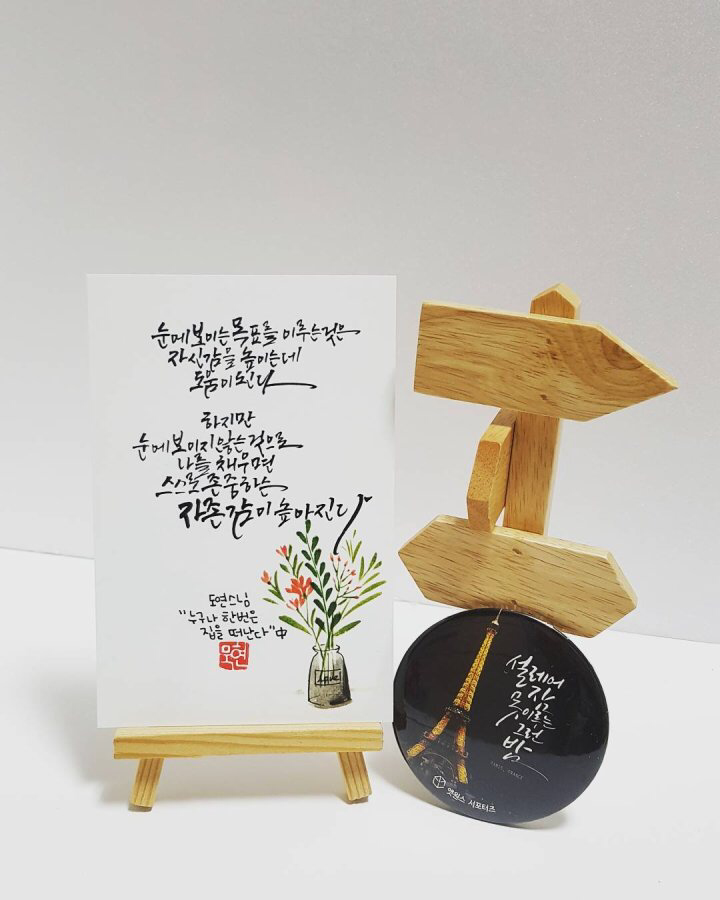 눈에 보이는 목표를 이루는것은
자신감을 높이는데
도움이 된다
하지만
눈에 보이지 않는 것으로
나를 채우면
스스로 존중하는
자존감이 높아진다
도연스님
"누구나 한번은
집을 떠난다" 中
모현
Love
설레어
잠
못 이루는
그런
밤
PARIS, FRANCE
앳원스 서포터즈